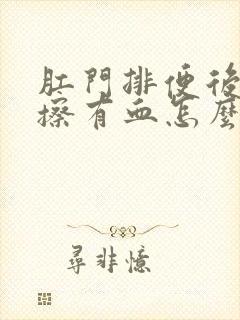 肛門排便後
擦有血怎麼
尋非憶